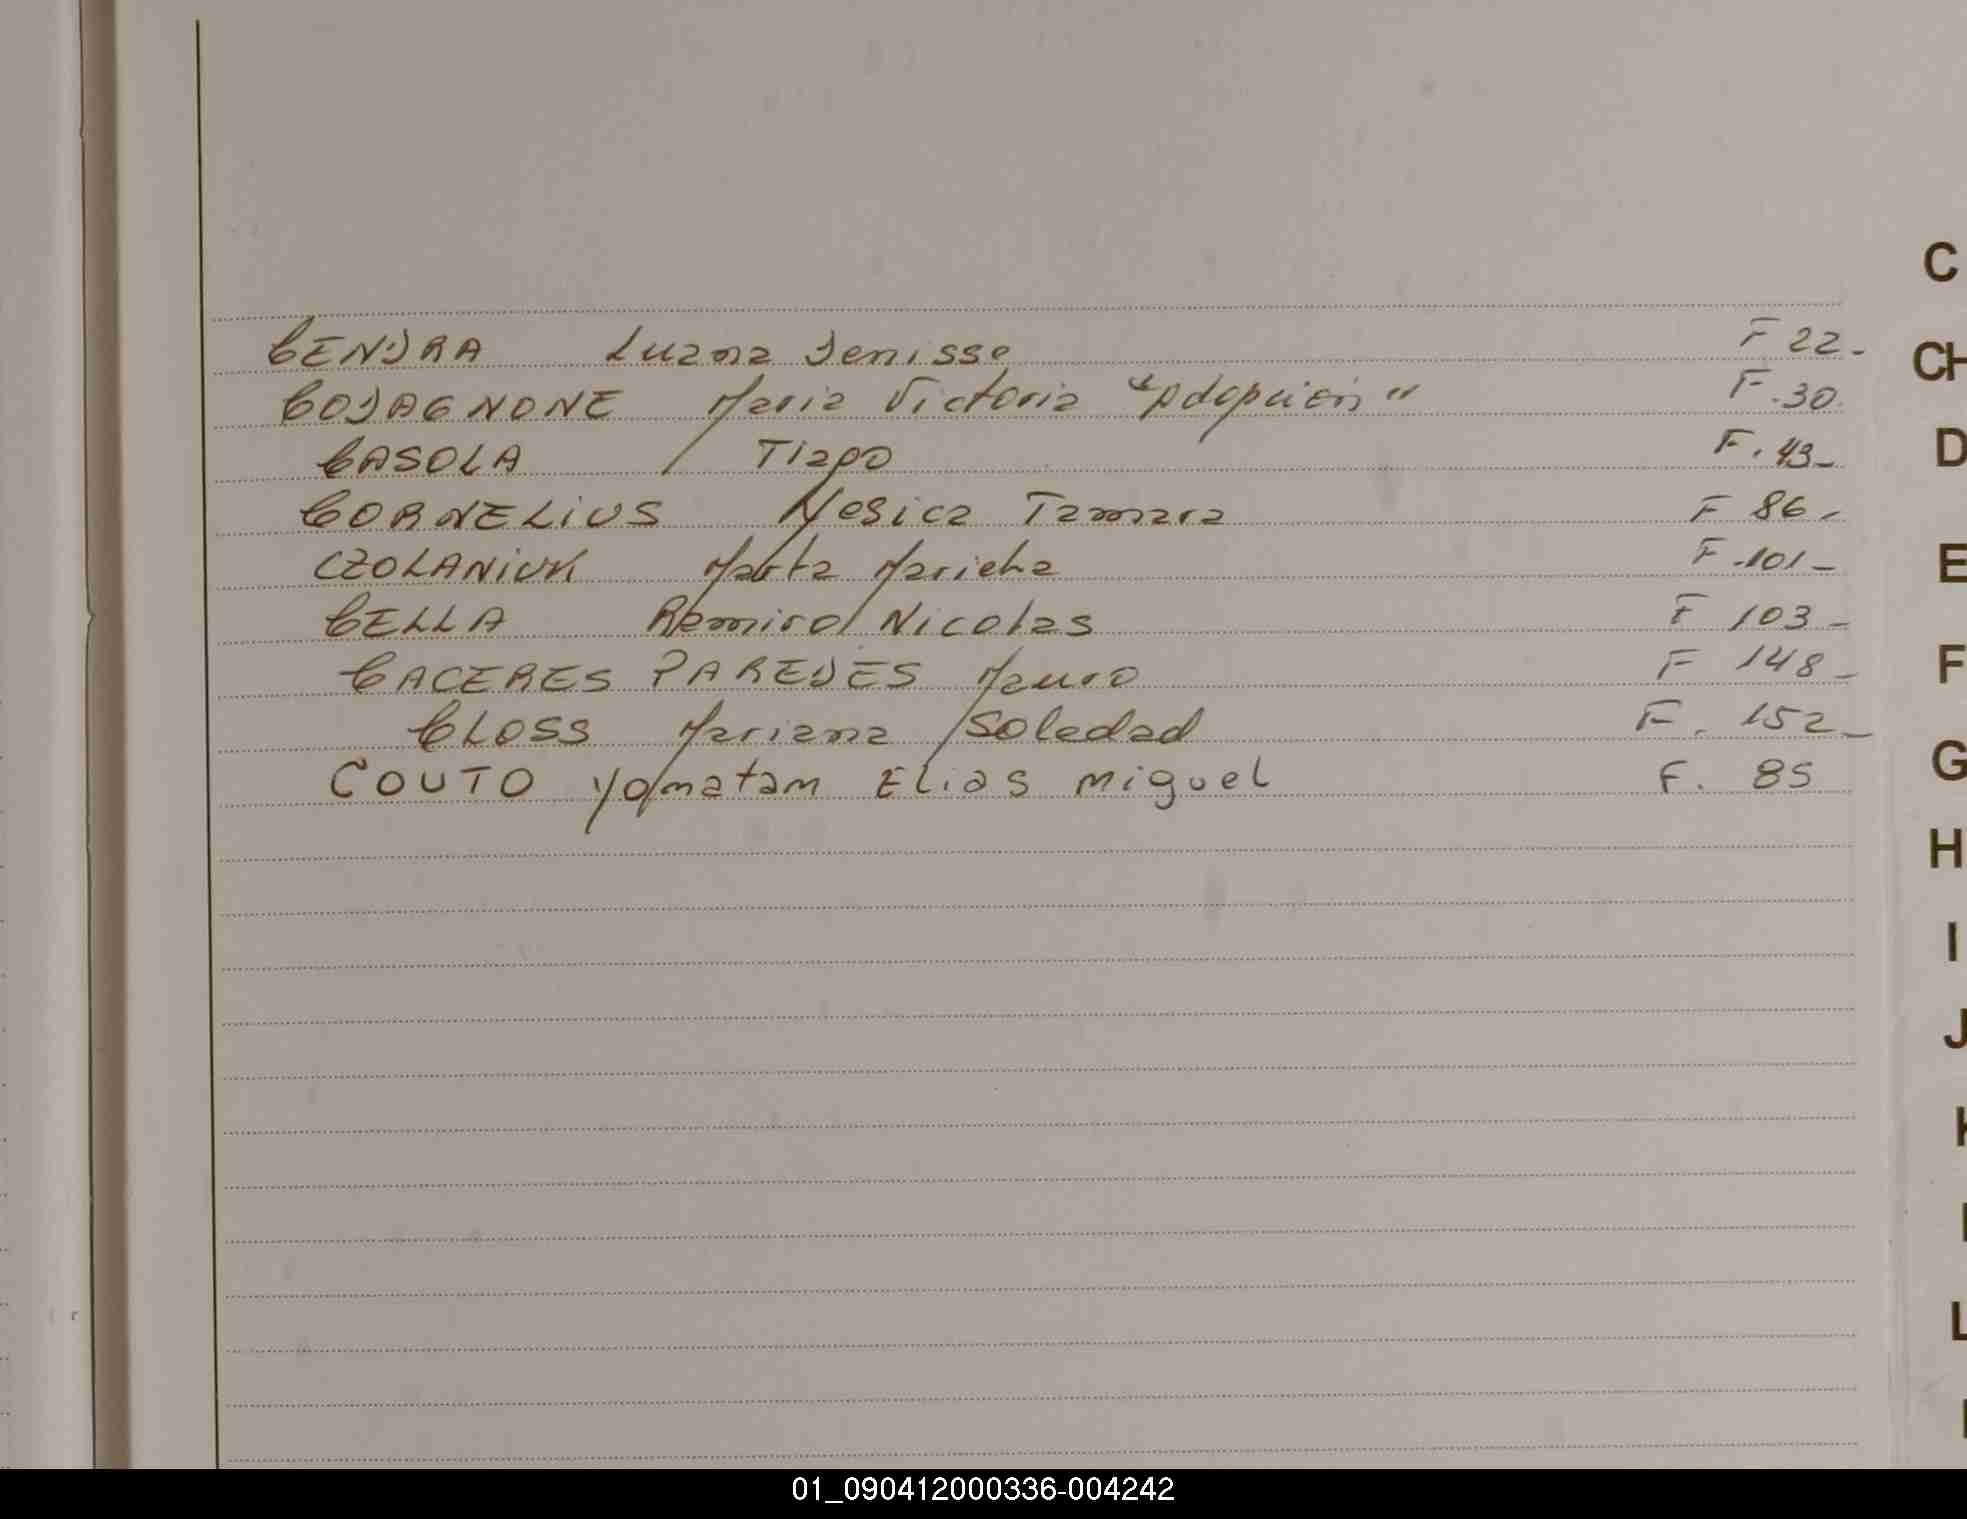 CENDRA Luana Denisse F 22-
CODAGNONE Maria Victoria "Adopción" F.30.
CASOLA Tiago F. 43-
CORNELIUS Yesica Tamara F 86-
CZOLANIUK Marta Mariela F.101-
CELLA Ramiro Nicolas F 103-
CACERES PAREDES Mauro F 148-
CLOSS Mariana Soledad F. 152-
COUTO Yomatam Elias Miguel F. 85
C
CH
D
E
F
G
H
I
J
K
L
01_090412000336-004242